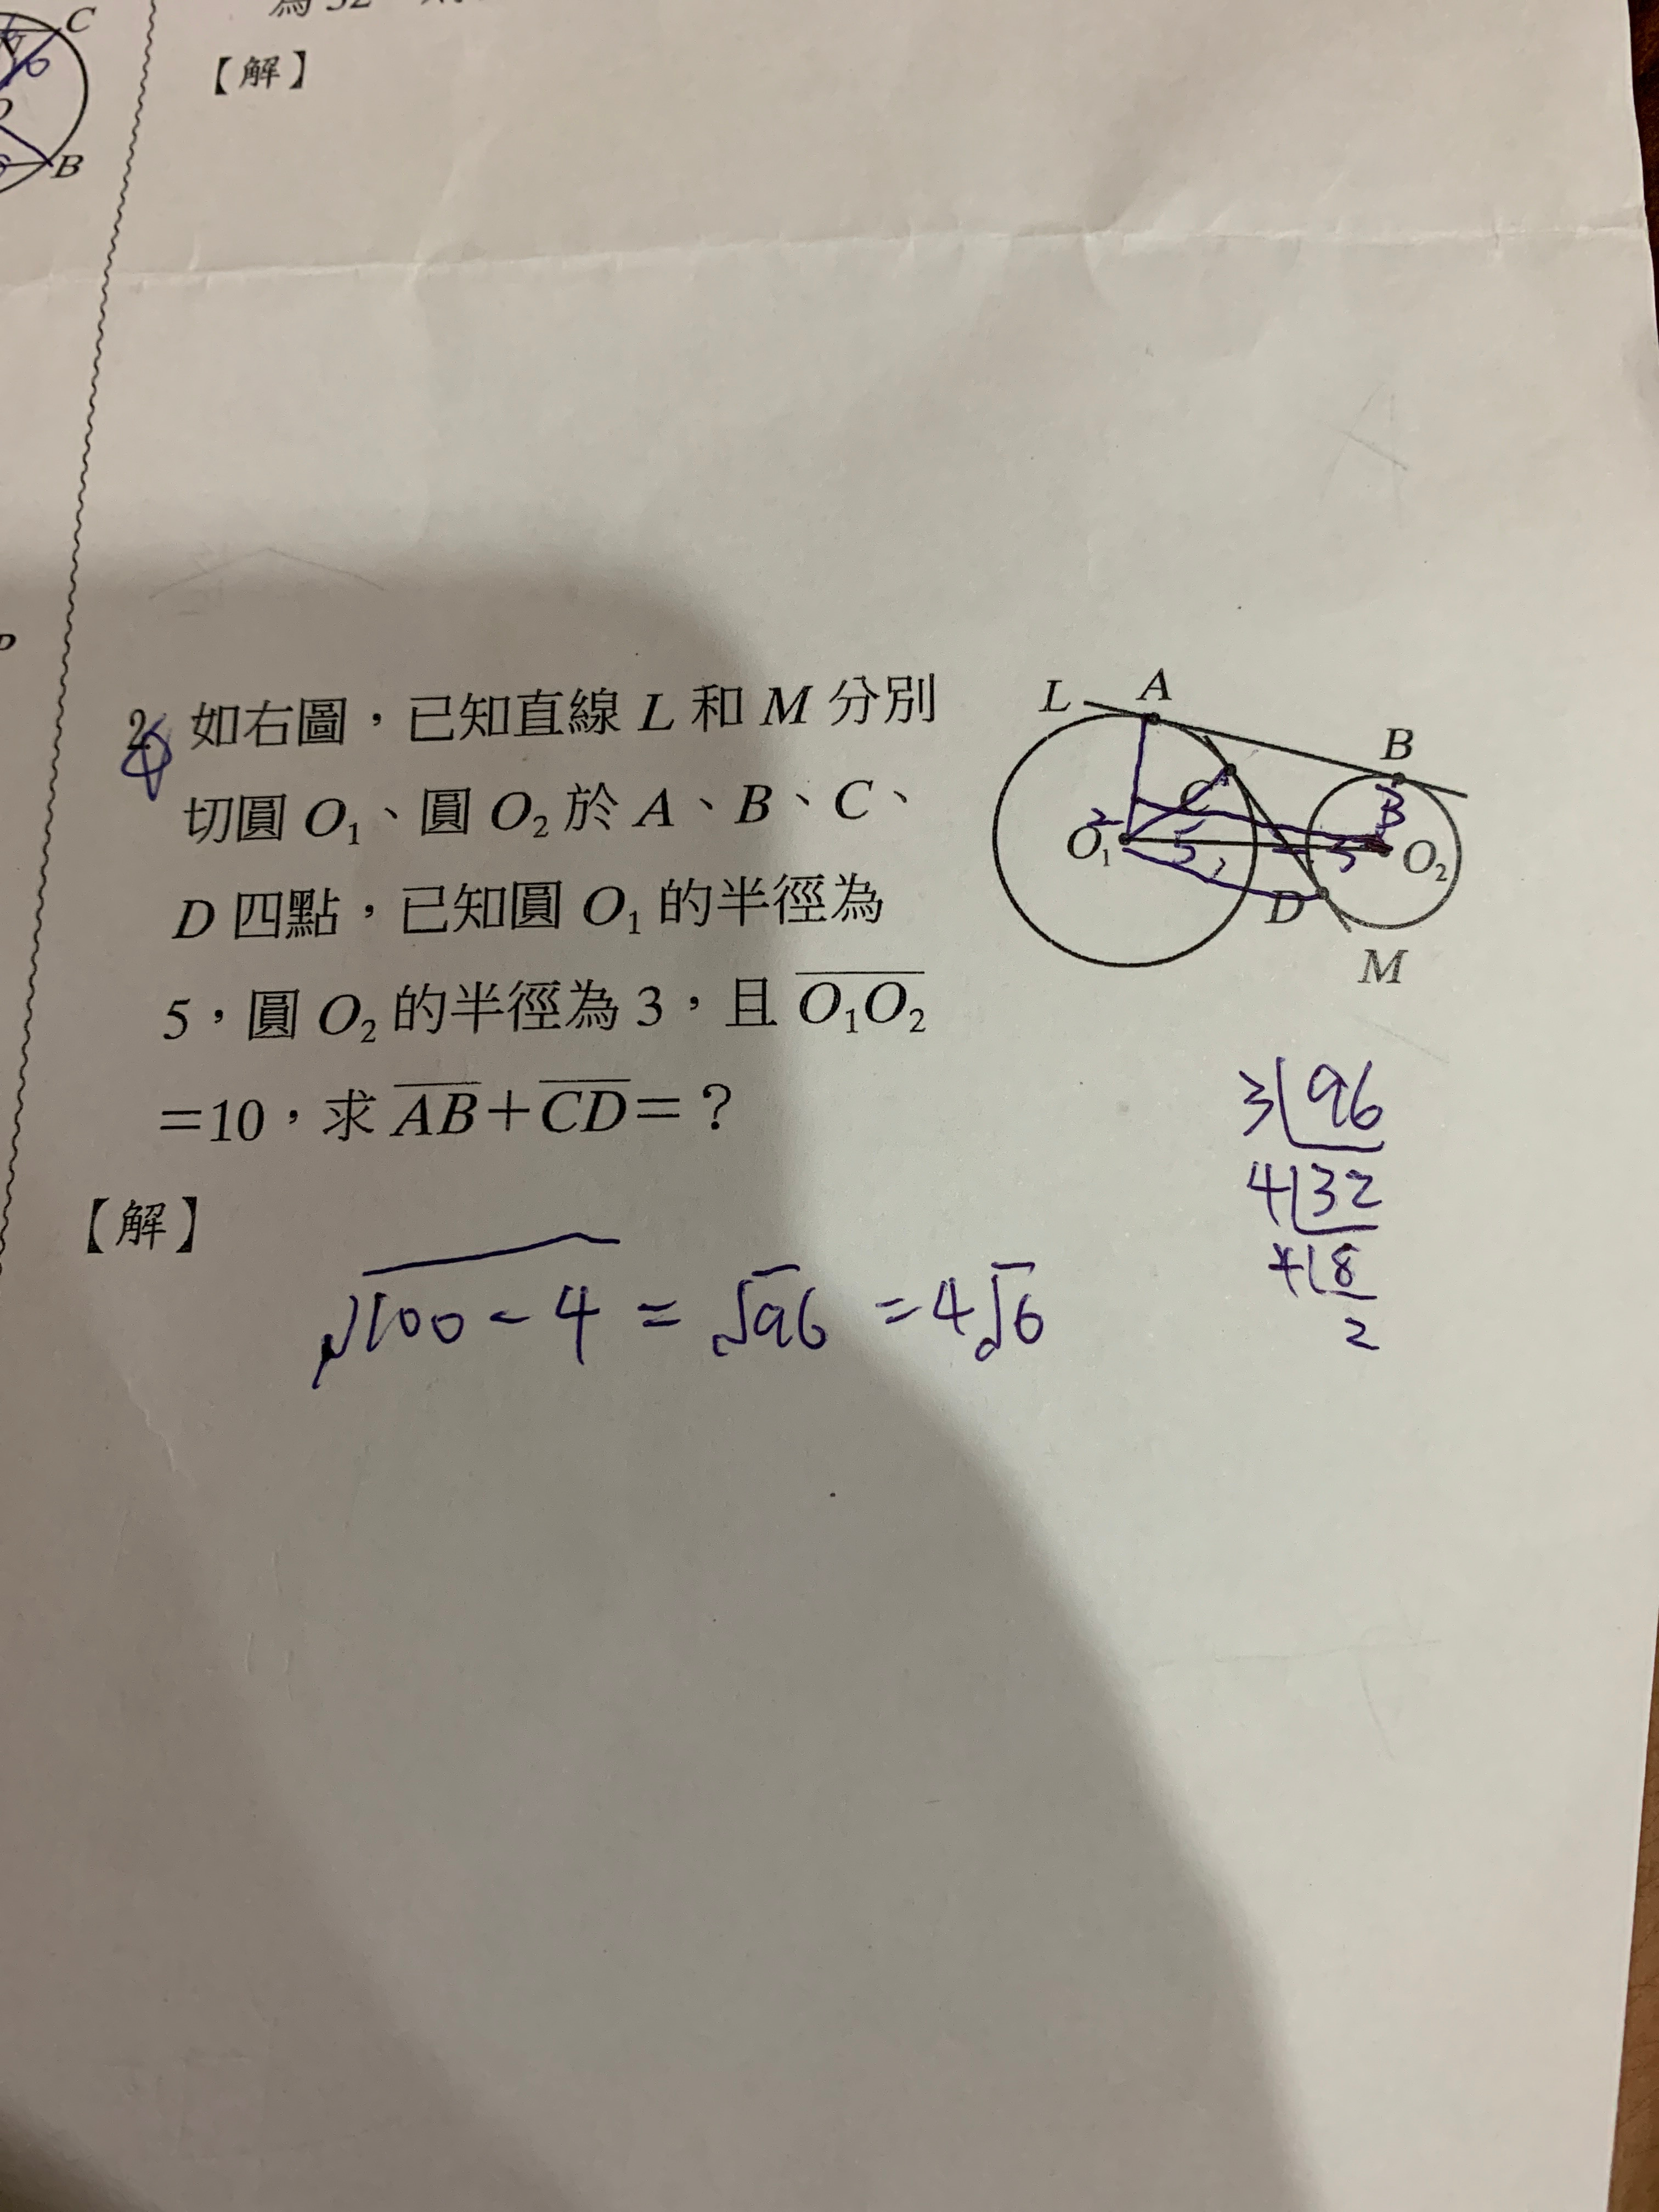 C
B
【解】
2. 如右圖，已知直線 L 和 M 分別
切圓 O₁、圓 O₂ 於 A、B、C、
D 四點，已知圓 O₁ 的半徑為
5，圓 O₂ 的半徑為 3，且 O₁O₂
＝10，求 AB＋CD＝？
L A
B
C
3
2
O₁ 5 3 O₂
D
M
【解】
√100-4 = √96 = 4√6
3 96
4 32
4 8
2